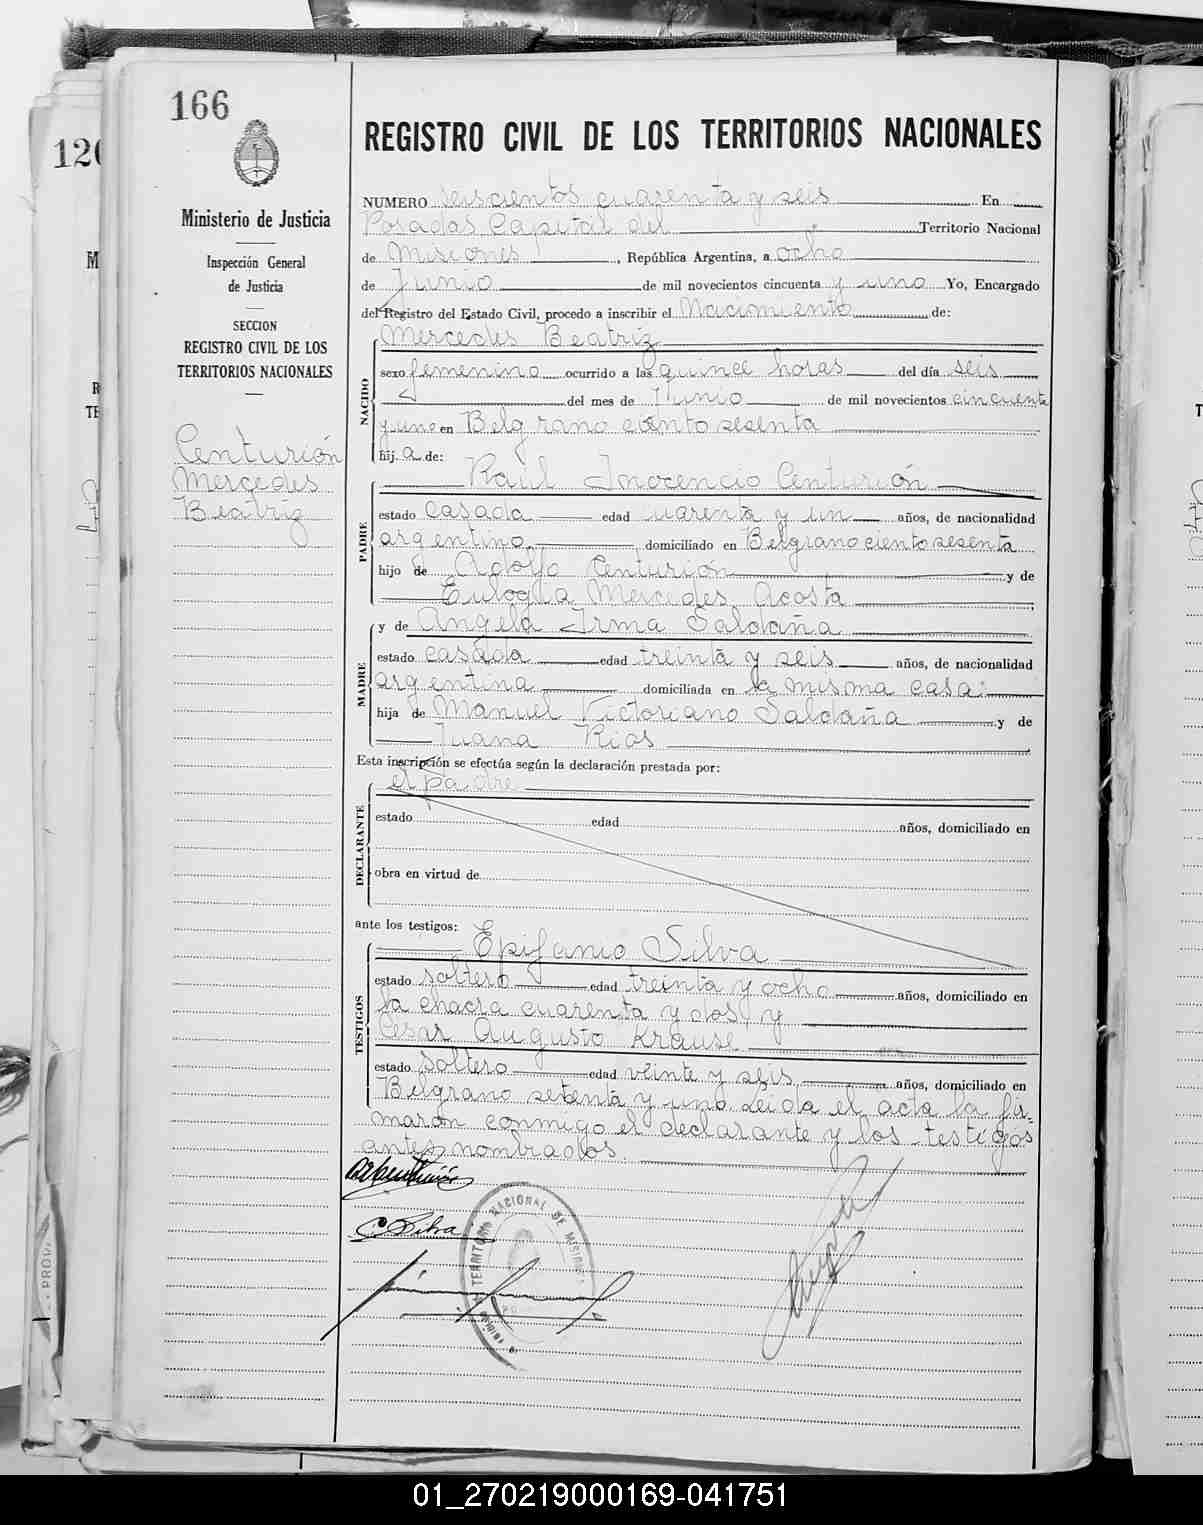 166
120
Ministerio de Justicia
Inspección General
de Justicia
SECCION
REGISTRO CIVIL DE LOS
TERRITORIOS NACIONALES
Centurión
Mercedes
Beatriz
REGISTRO CIVIL DE LOS TERRITORIOS NACIONALES
NUMERO seiscientos cuarenta y seis En
Posadas Capital del Territorio Nacional
de Misiones, República Argentina, a ocho
de Junio de mil novecientos cincuenta y uno Yo, Encargado
del Registro del Estado Civil, procedo a inscribir el Nacimiento de:
Mercedes Beatriz
NACIDO
sexo femenino ocurrido a las quince horas del día seis
del mes de Junio de mil novecientos cincuenta
y uno en Belgrano ciento sesenta
hij.a de:
Raúl Inocencio Centurión
PADRE
estado casada edad cuarenta y un años, de nacionalidad
argentino domiciliado en Belgrano ciento sesenta
hijo de Adolfo Centurión y de
Eulogia Mercedes Acosta
y de Angela Irma Saldaña
MADRE
estado casada edad treinta y seis años, de nacionalidad
argentina domiciliada en la misma casa
hija de Manuel Victoriano Saldaña y de
Juana Rios
Esta inscripción se efectúa según la declaración prestada por:
el padre
DECLARANTE
estado edad años, domiciliado en
obra en virtud de
ante los testigos:
Epifanio Silva
TESTIGOS
estado soltero edad treinta y ocho años, domiciliado en
la chacra cuarenta y dos, y
Cesar Augusto Krause
estado soltero edad veinte y seis años, domiciliado en
Belgrano setenta y uno Leida el acta la fir-
maron conmigo el declarante y los testigos
antes nombrados.
E Silva
TERRITORIO NACIONAL DE MISIONES
01_270219000169-041751